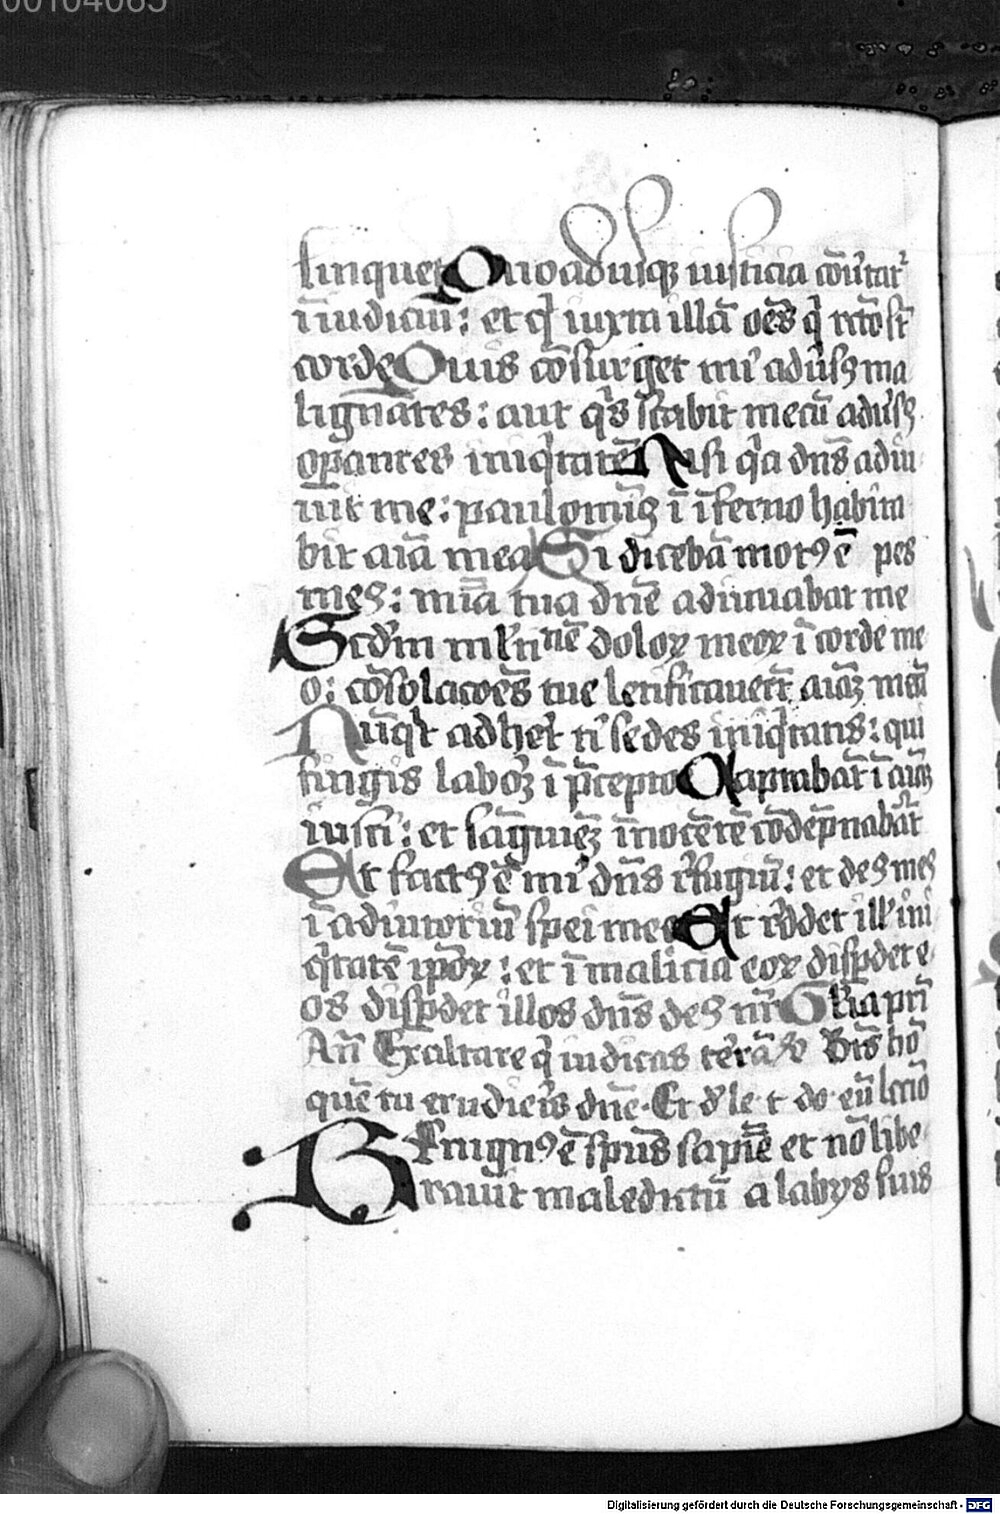 00104065
linquet Quoadusqꝫ iusticia cōu̾tat᷑
ī iudiciū : et q̇ iuxta illā oēs q̇ recto st̄
corde Quis cōsurget mi̾ adu̾sꝰ ma
lignātes : aut qͥs stabit mecū adu̾sꝰ
oꝑantes iniqͥtatē Nisi qͥa dn̄s adiu
uit me : paulominꝰ ī īferno habita
bit aīa mea Si dicebā motꝰ ē pes
meꝰ : mīa tua dn̄e adiuuabat me
Scd̾m ml̾titu͞nē doloꝝ meoꝝ ī corde me
o : cōsolacoēs tue letificauerūt aīaꝫ meā
Nūqͥd adheret ti̾ sedes iniqͥtatis : qui
fingis laboꝫ ī p̄cepto Captabāt ī aīaꝫ
iusti : et sāguineꝫ īnocētē cōdēpnabāt
Et factꝰ ē mi̾ dn̄s ī refugiū : et deꝰ meꝰ
ī adiutoriū spei mee Et reddet ill̾ ini
qͥtatē ipoꝝ : et ī malicia eoꝝ disꝑdet e
os disꝑdet illos dn̄s deꝰ nr̄ Gl̾ia pr̄i
An̄ Exaltare q̇ iudicas terrā Bt̄s hō
quē tu erudieris dn̄e. Et
Benignꝰ ē spūs sapiē et nō libe
rauit maledictū a labijs suis
Digitalisierung gefördert durch die Deutsche Forschungsgemeinschaft - DFG